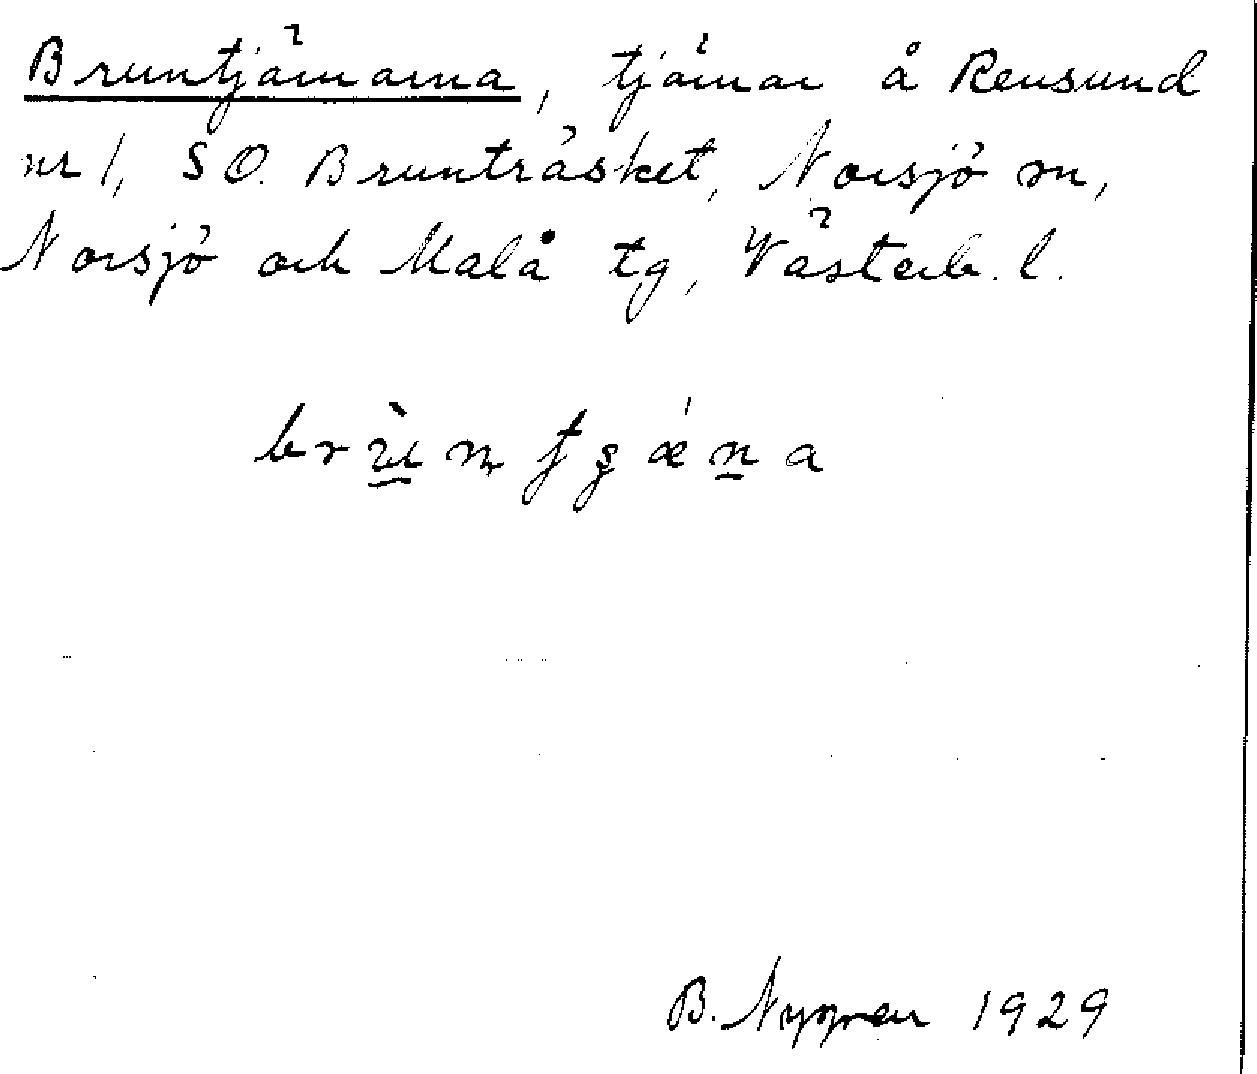 Bruntjärnarna, tjärnar å Rensund
nr 1, SO. Brunträsket, Norsjö sn,
Norsjö och Malå tg, Västerb. l.
B. Nygren 1929